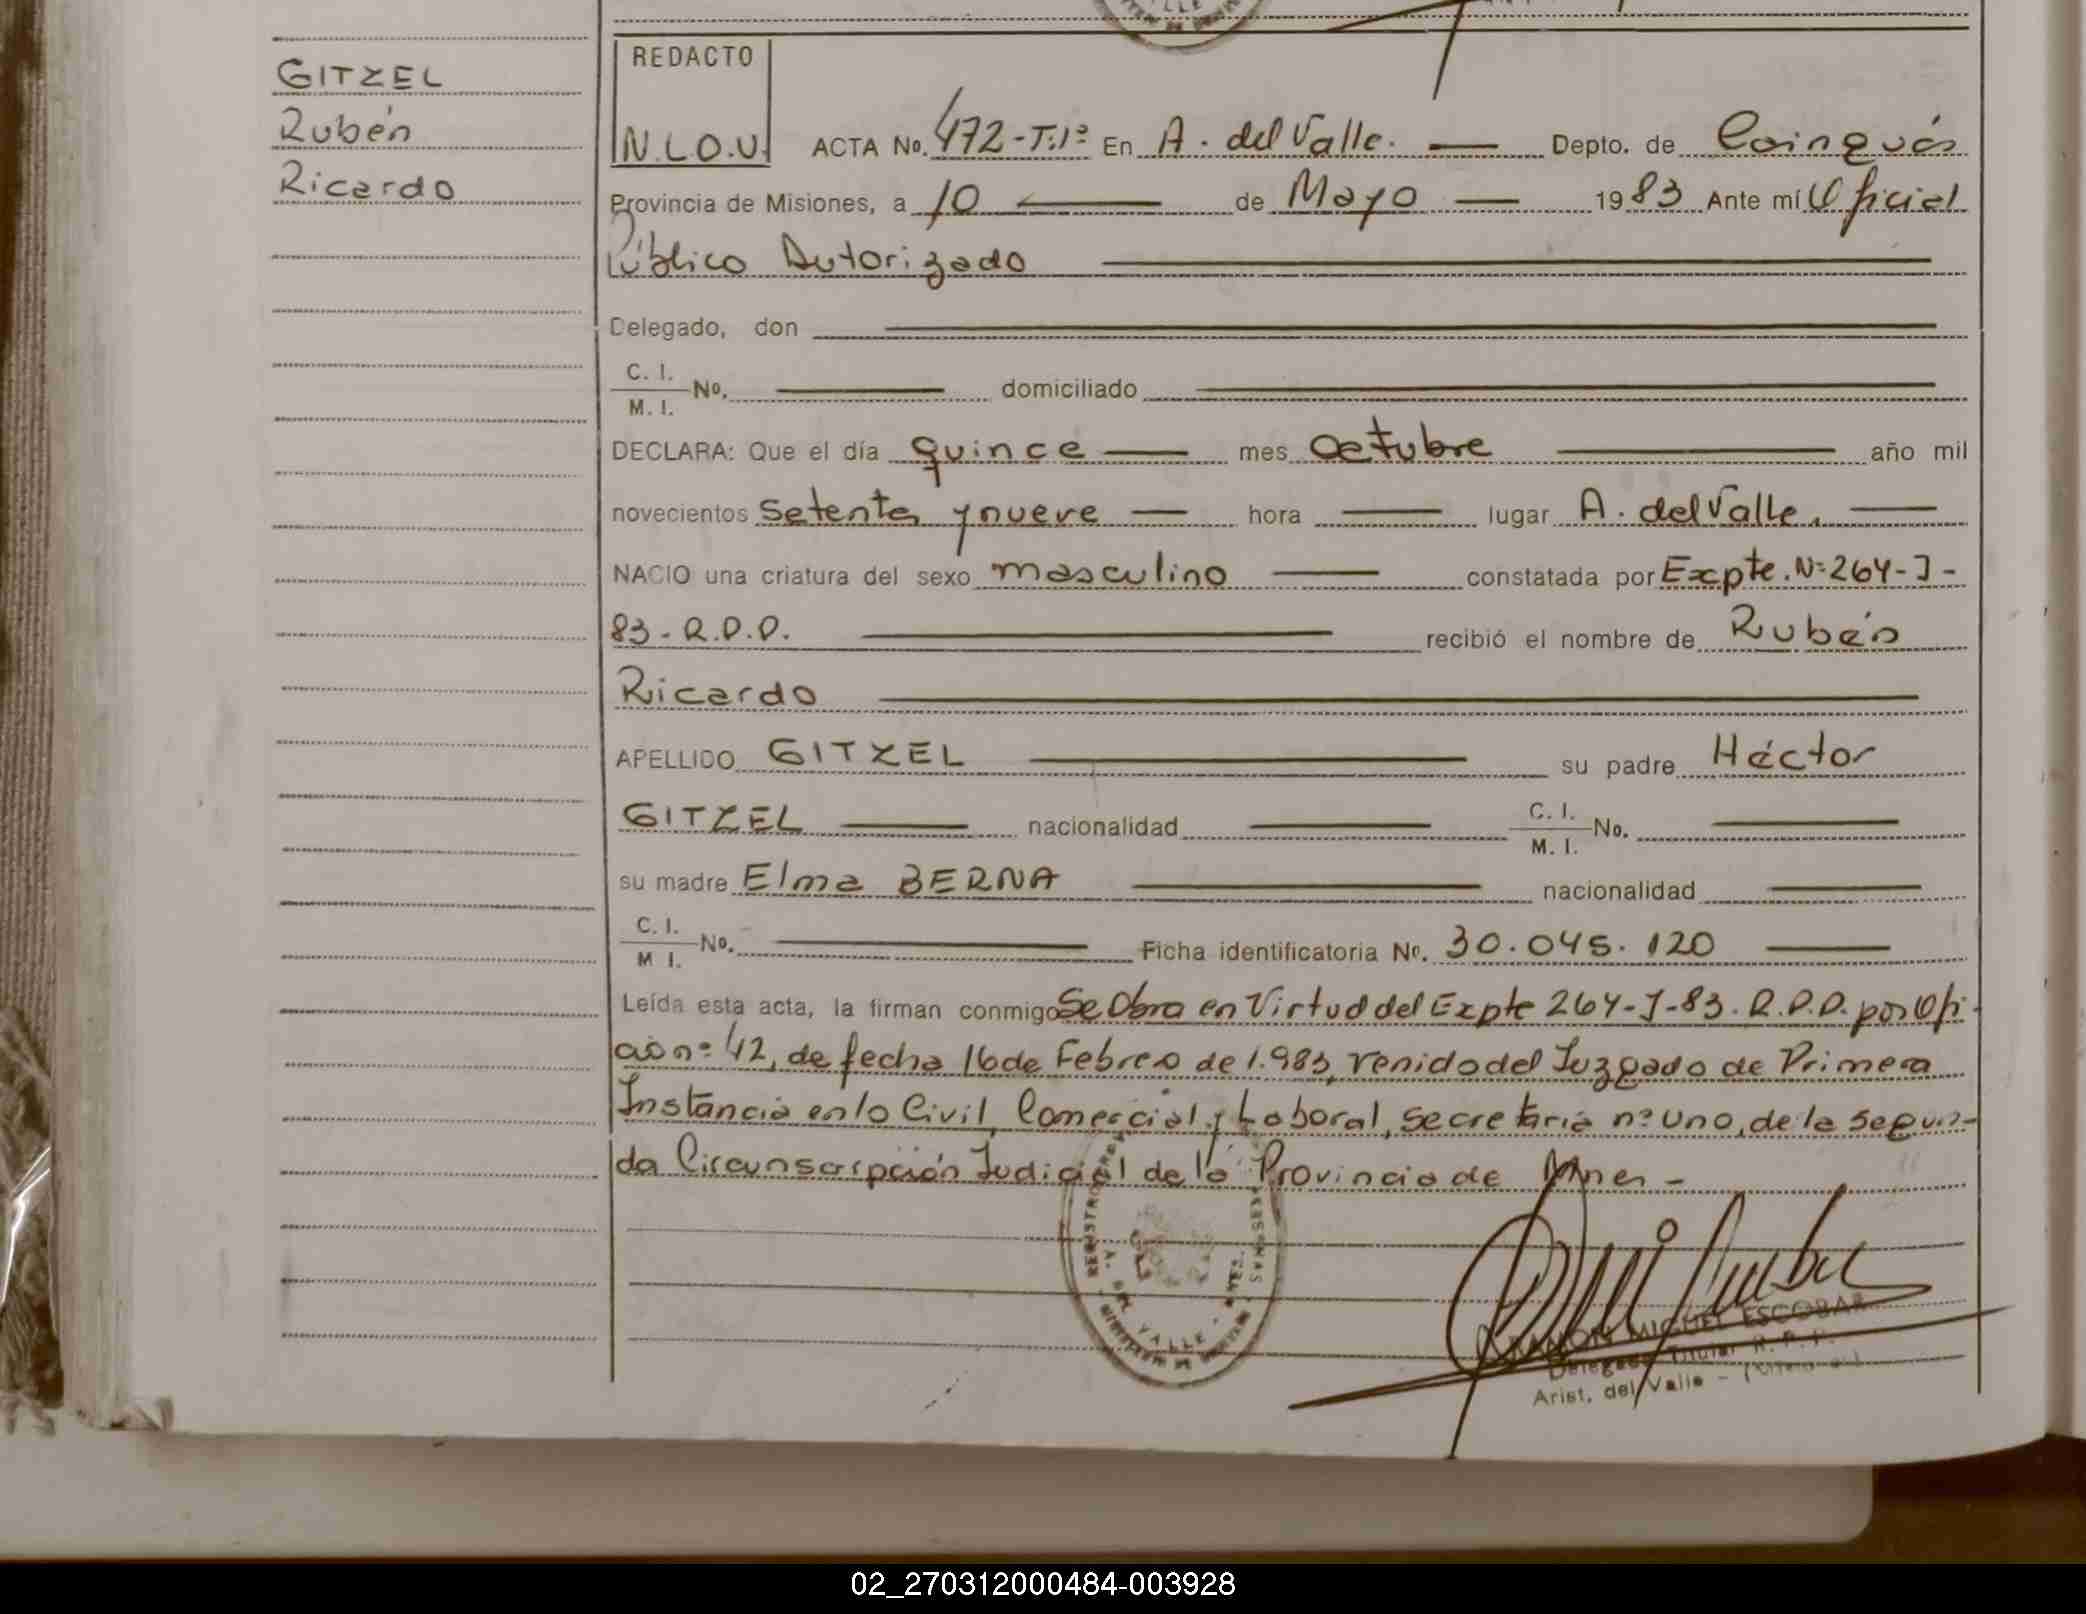 GITZEL
Rubén
Ricardo
REDACTO
N.L.O.V.
ACTA No. 472-T:1º En A. del Valle. Depto. de Cainguás
Provincia de Misiones, a 10 de Mayo 1983 Ante mí Oficial
Público Autorizado
Delegado, don
C. I.
M. I. No. domiciliado
DECLARA: Que el día quince mes Octubre año mil
novecientos setenta y nueve hora lugar A. del Valle.
NACIO una criatura del sexo masculino constatada por Expte. Nº 264-J-
83-R.P.P. recibió el nombre de Rubén
Ricardo
APELLIDO GITZEL su padre Héctor
GITZEL nacionalidad C. I. M. I. No.
su madre Elma BERNA nacionalidad
C. I. M I. No. Ficha identificatoria No. 30.045.120
Leída esta acta, la firman conmigo Se Obra en Virtud del Expte 264-J-83. R.P.P. por Ofi-
cio nº 42, de fecha 16 de Febrero de 1.983, venido del Juzgado de Primera
Instancia en lo Civil, Comercial y Laboral, secretaria nº uno, de la segun-
da Circunscrpción Judicial de la Provincia de Mnes -
VALLE
RAMON MIGUEL ESCOBAR
Delegado Titular R. P. P.
Arist. del Valle -
02_270312000484-003928